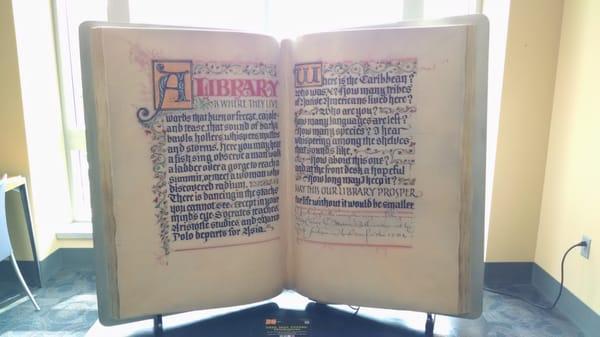 A LIBRARY
IS WHERE THEY LIVE
words that burn or freeze, cajole
and tease, that sound of barks
bawls, hollers, whispers, mutters
and storms. Here you may hear
a fish sing, observe a man with
a ladder over a gorge to reach a
summit, or meet a woman who
discovered radium.
There is dancing in the stacks
you cannot see except in your
minds eye. Socrates teaches,
Aristotle studies and Marco
Polo departs for Asia.
Where is the Caribbean?
Who was x? How many tribes
of Native Americans lived here?
Who are you?
How many languages are left?
How many species? I hear
whispering among the shelves
that sounds like,
How about this one?
and at the front desk a hopeful
How long may I keep it?
MAY THIS OUR LIBRARY PROSPER
the life without it would be smaller